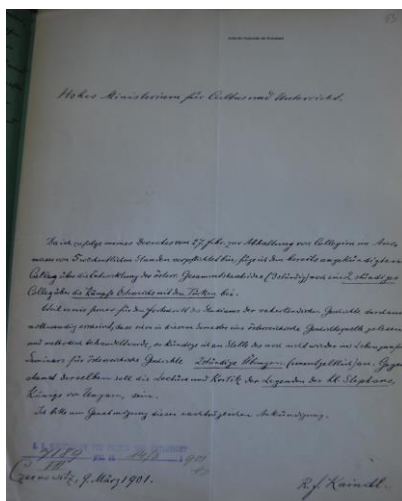 Hohes Ministerium für Cultus und Unterricht.
Da ich zufolge meines Decretes vom 27. Febr. zur Abhaltung von Collegien im Aus-
masse von 5 wöchentlichen Stunden verpflichtet bin, füge ich dem bereits angekündigten
Colleg über die Entwicklung der österr. Gesammtstaatsidee (3stündig) noch ein 2 stündiges
Colleg über die Kämpfe Österreichs mit den Türken bei.
Weil mir ferner für den Fortschritt des Studiums der vaterländischen Geschichte durchaus
nothwendig erscheint, dass schon in diesem Semester eine österreichische Geschichtsquelle gelesen
und methodisch behandelt werde, so kündige ich an Stelle des noch nicht wieder ins Leben gerufenen
Seminars für österreichische Geschichte 2stündige Übungen (unentgeltlich) an. Gegen-
stand derselben soll die Lectüre und Kritik der Legenden des hl. Stephans,
Königs von Ungarn, sein.
Ich bitte um Genehmigung dieser nachträglichen Ankündigung.
K. K. MINISTERIUM FÜR CULTUS UND UNTERRICHT
7189
Czernowitz, 9. März 1901.
R. F. Kaindl